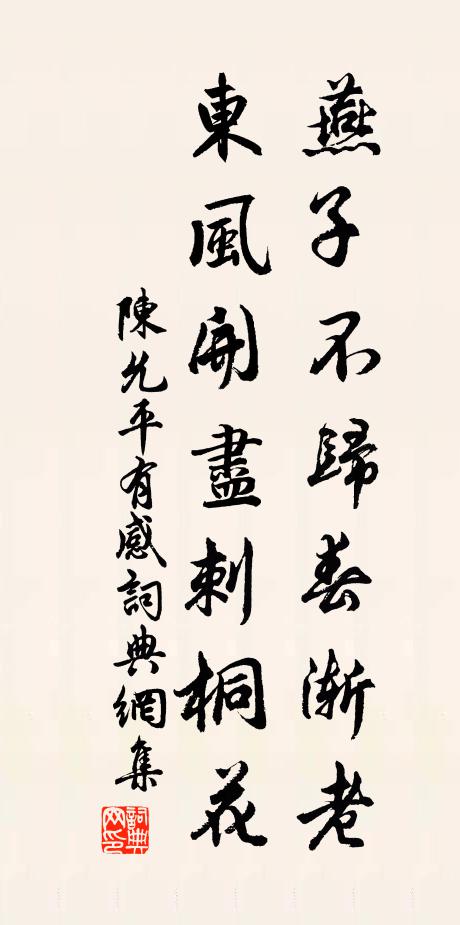 燕子不歸春漸老
東風開盡刺桐花
陳允平有感詞典網集
詞典網印